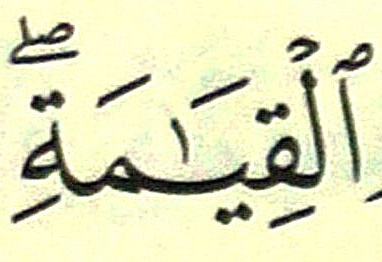 ٱلْقِيَـٰمَةِۖ